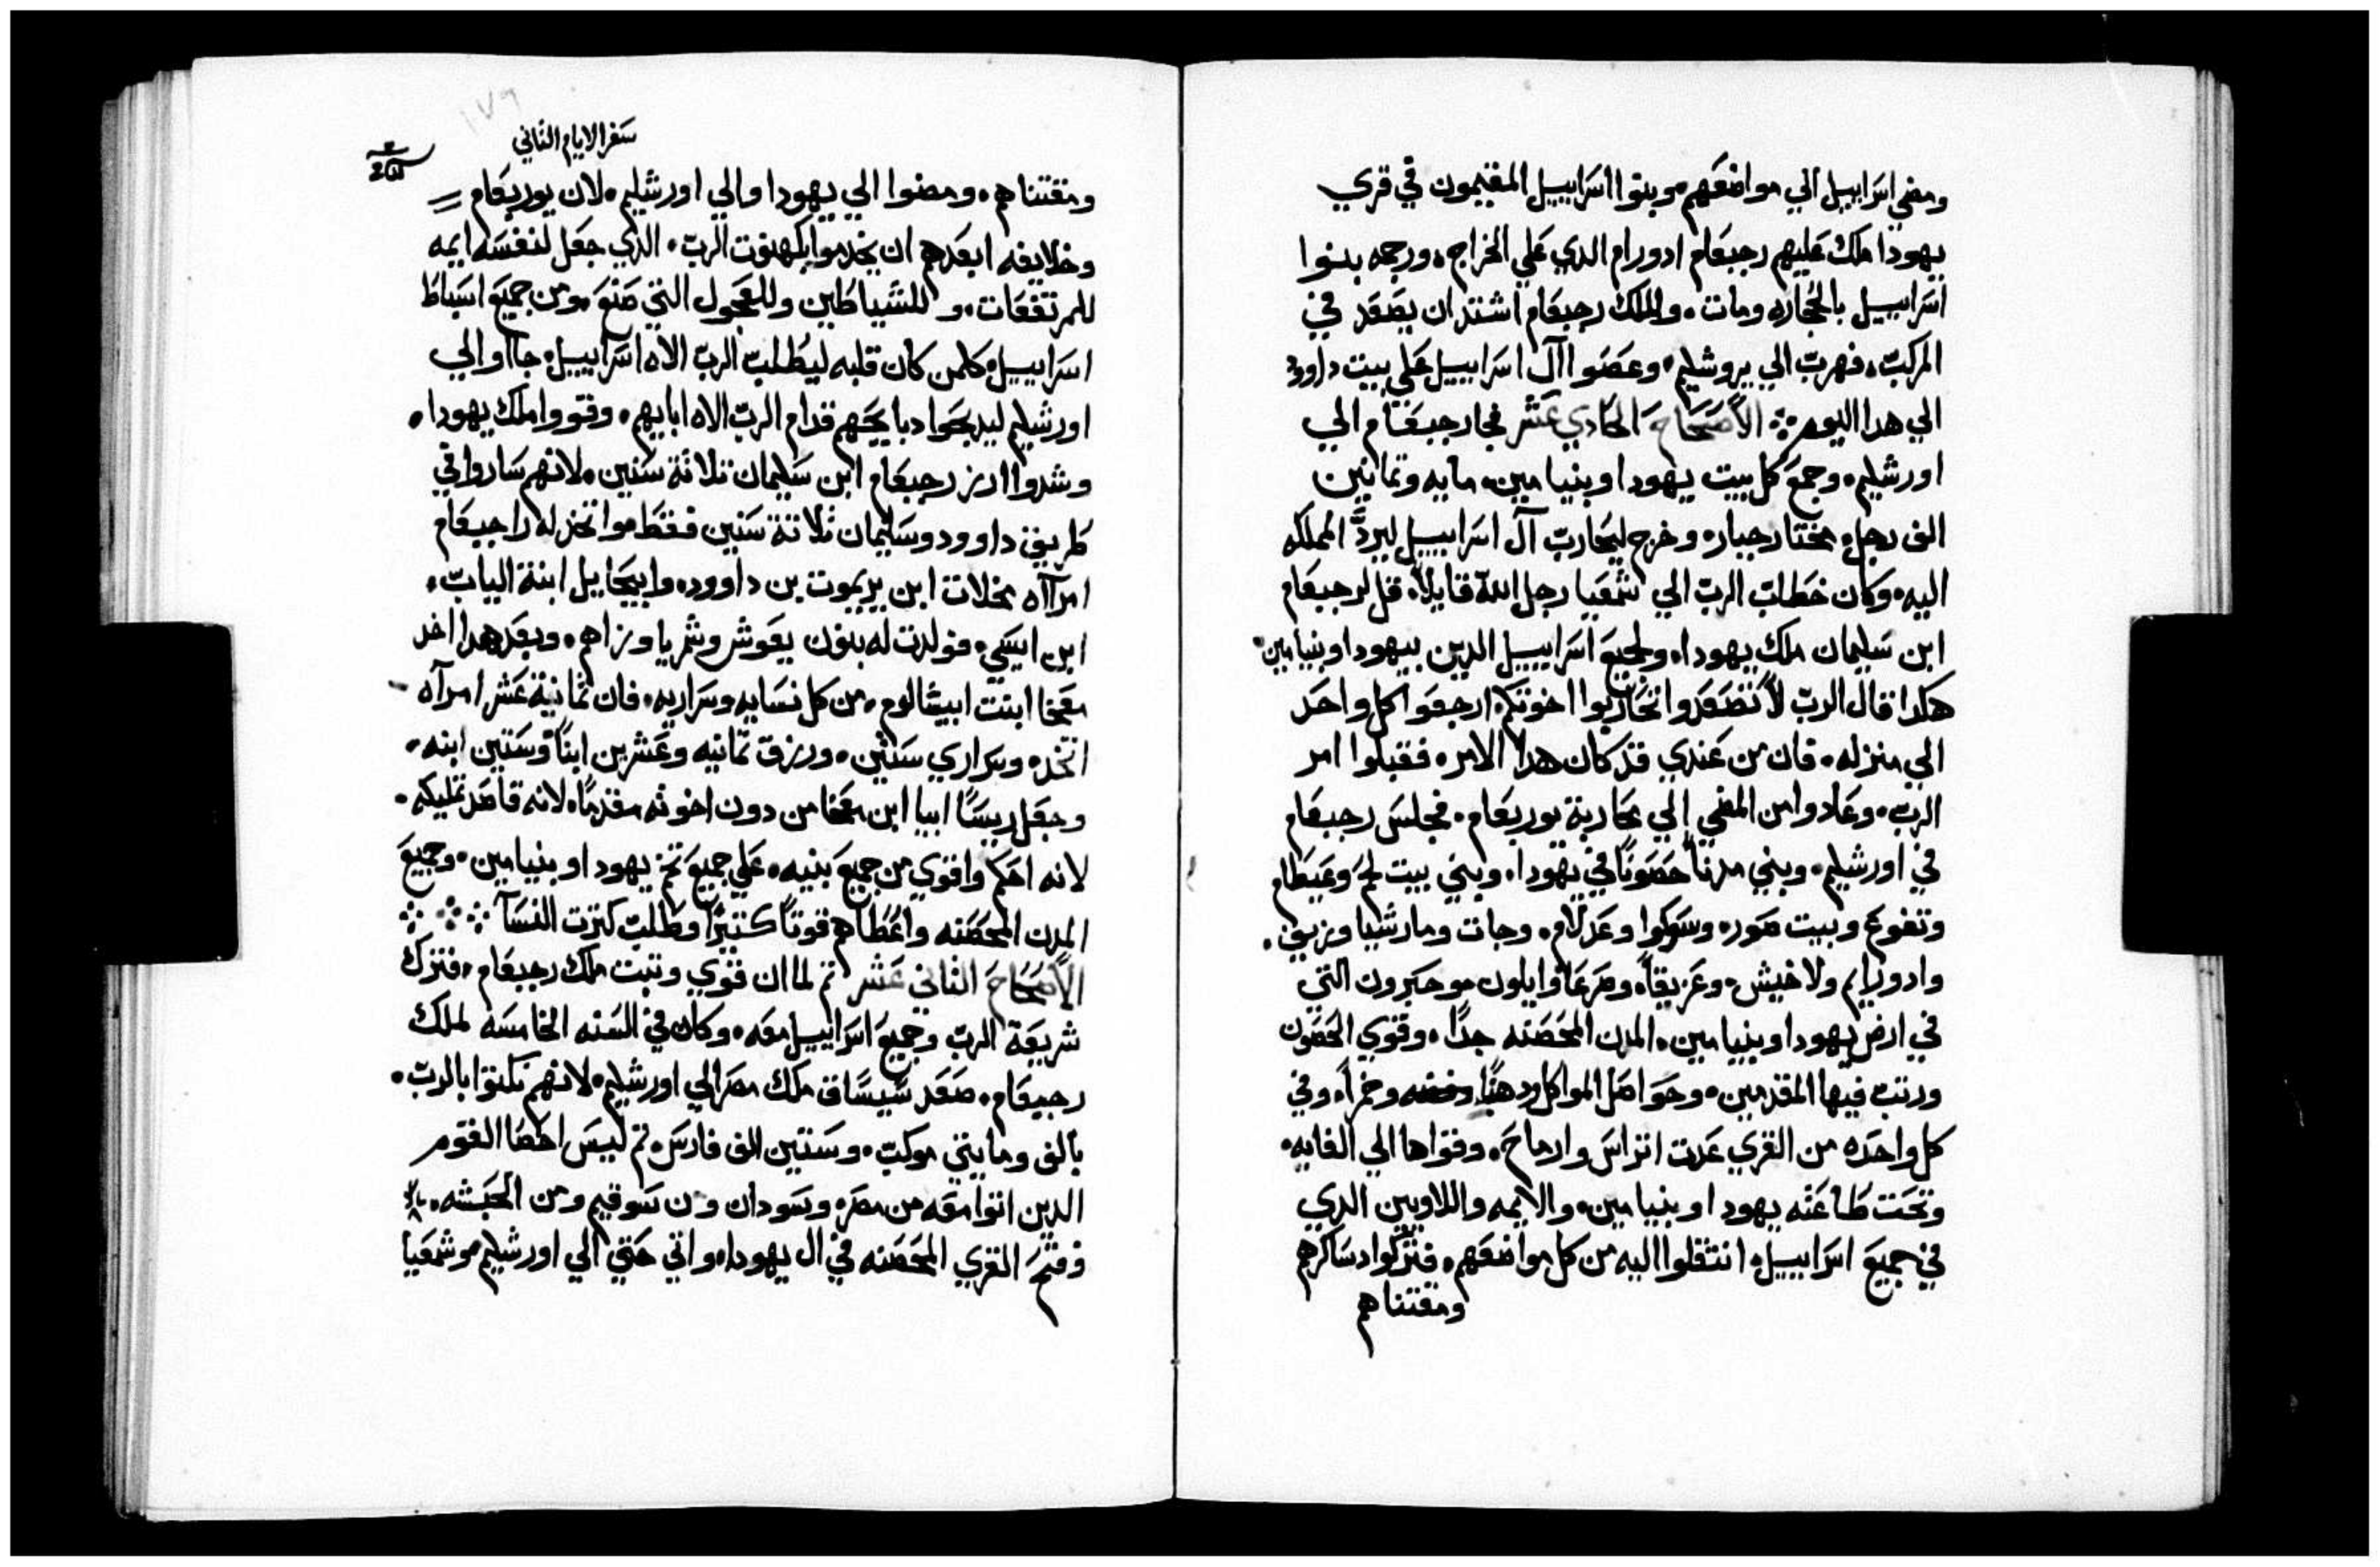 ومضي اسراييل الي مواضعهم وبنوا اسراييل المقيمون في قري
يهودا ملك عليهم رجبعام ادورام الدي علي الخراج ورجمه بنوا
اسراييل بالحجاره ومات والملك رجبعام اشتد ان يصعد في
المركب فهرب الي يروشليم وعصوا آل اسراييل علي بيت داوود
الي هدا اليوم الأصحاح الحادي عشر فجا رجبعام الي
اورشليم وجمع كل بيت يهودا وبنيامين مايه وثمانين
الف رجل مختار جباره وخرج ليحارب آل اسراييل ليرد المملكه
اليه وكان خطاب الرب الي شمعيا رجل الله قايلا قل لرجبعام
ابن سليمان ملك يهودا ولجميع اسراييل الدين بيهودا وبنيامين
هكدا قال الرب لا تصعدوا تحاربوا اخوتكم ارجعوا كل واحد
الي منزله فان من عندي قد كان هدا الامر فقبلوا امر
الرب وعادوا من المضي الي محاربة يوربعام فجلس رجبعام
في اورشليم وبني مدنا حصونا في يهودا وبني بيت لحم وعيطام
وتفوع وبيت صوره وسوكوا وعدلام وجات ومارشيا وزيف
وادورايم ولاخيش وعزيقا وصرعا وايلون موحبرون التي
في ارض يهودا وبنيامين المدن المحصنه جدا وقوي الحصون
ورتب فيها المقدمين وحواصل المواكل ودهنا وخمرا وفي
كل واحده من القري عدت اتراس وارماح وقواها الي الغايه
وتحت طاعته يهودا وبنيامين والايمه واللاويين الدي
في جميع اسراييل انتقلوا اليه من كل مواضعهم فتركوا دساكرهم
ومقتناهم
سفر الايام الثاني
ومقتناهم ومضوا الي يهودا والي اورشليم لان يوربعام
وخلايفه ابعدهم ان يخدموا بكهنوت الرب الدي جعل لنفسه ايمه
للمرتفعات وللشياطين وللعجول التي صنع ومن جميع اسباط
اسراييل كلمن كان قلبه ليطلب الرب الاه اسراييل جاآوا الي
اورشليم ليدبحوا دبايحهم قدام الرب الاه ابايهم وقووا ملك يهودا
وشدوا ازر رجبعام ابن سليمان ثلاثة سنين لانهم ساروا في
طريق داوود وسليمان ثلاثة سنين فقط موا تخد له راجبعام
امرآاه مخلات ابن يريموت بن داوود وابيحاييل ابنة الياب
ابن ايسي فولدت له بنون يعوش وشمريا وزاهم وبعد هدا اخد
معخا ابنت ابيشالوم من كل نسايه وسراريه فان ثمانية عشر امرآه
اتخد وسراري ستين ورزق ثمانيه وعشرين ابنا وستين ابنه
وجعل ريسا ابيا ابن معخا من دون اخوته مقدما لانه قاصد تمليكه
لانه احكم واقوي من جميع بنيه علي جميع تخم يهودا وبنيامين وجميع
المدن المحصنه واعطاهم قوتا كثيرا وطلب كثرت النسآ
الأصحاح الثاني عشر ثم لما ان قوي وتبت ملك رجبعام فترك
شريعة الرب وجميع اسراييل معه وكان في السنه الخامسه لملك
رجبعام صعد سيساق ملك مصر الي اورشليم لانهم نكتوا بالرب
بالف ومايتي موكب وستين الف فارس ثم ليس احصا القوم
الدين اتوا معه من مصر وسودان ون سوقيم ومن الحبشه
وفتح القري المحصنه في ال يهودا واتي حتي الي اورشليم موشمعيا